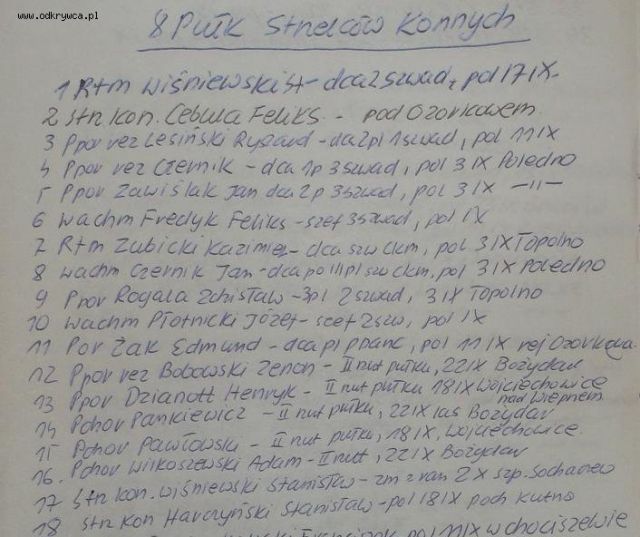 www.odkrywca.pl
8 Pułk Strzelców Konnych
1 Rtm Wiśniewski St - dca 2 szwad, pol 17 IX -
2 Str. Kon. Cebula Feliks - pod Ozorkowem
3 Ppor rez Lesiński Ryszard - dca 2 pl 1 szwad, pol 11 IX
4 Ppor rez Czernik - dca 1p 3 szwad, pol 3 IX Poledno
5 Ppor Zawiślak Jan dca 2p 3 szwad, pol 3 IX -"-
6 Wachm Fredyk Feliks - szef 3 szwad, pol IX
7 Rtm Zubicki Kazimierz - dca szw ckm, pol 3 IX Topolno
8 Wachm Czernik Jan - dca po III pl szw ckm, pol 3 IX Poledno
9 Ppor Rogala Zdzisław - 3 pl 2 szwad, 3 IX Topolno
10 Wachm Płotnicki Józef - szef 2 szw, pol IX
11 Por Żak Edmund - dca pl ppanc, pol 11 IX rej Ozorkowa
12 Ppor rez Bobowski Zenon - II rzut pułku, 22 IX Bożydar
13 Ppor Dzianott Henryk - II rzut pułku 18 IX Wojciechowice
nad Wieprzem
14 Pchor Pankiewicz - II rzut pułku, 22 IX las Bożydar
15 Pchor Pawłowski - II rzut pułku, 18 IX, Wojciechowice.
16. Pchor Wilkoszewski Adam - II rzut, 22 IX Bożydar
17 Str Kon. Wiśniewski Stanisław - zm z ran 2 X szp. Sochaczew
18 Str Kon Harczyński Stanisław - pol 18 IX pod Kutno
Franciszek pol 11 IX w Chociszewie